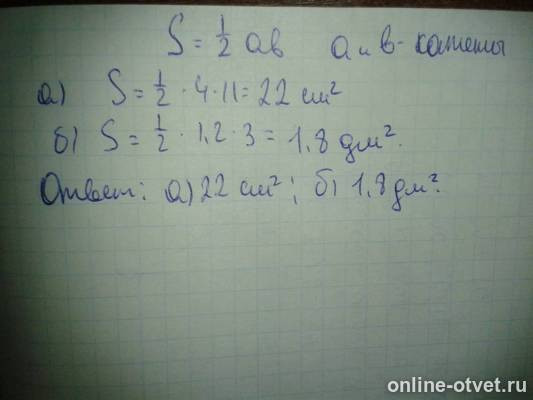 S = 1/2 ab a и b - катеты
а) S = 1/2 · 4 · 11 = 22 см²
б) S = 1/2 · 1,2 · 3 = 1,8 дм².
Ответ: а) 22 см²; б) 1,8 дм².
online-otvet.ru